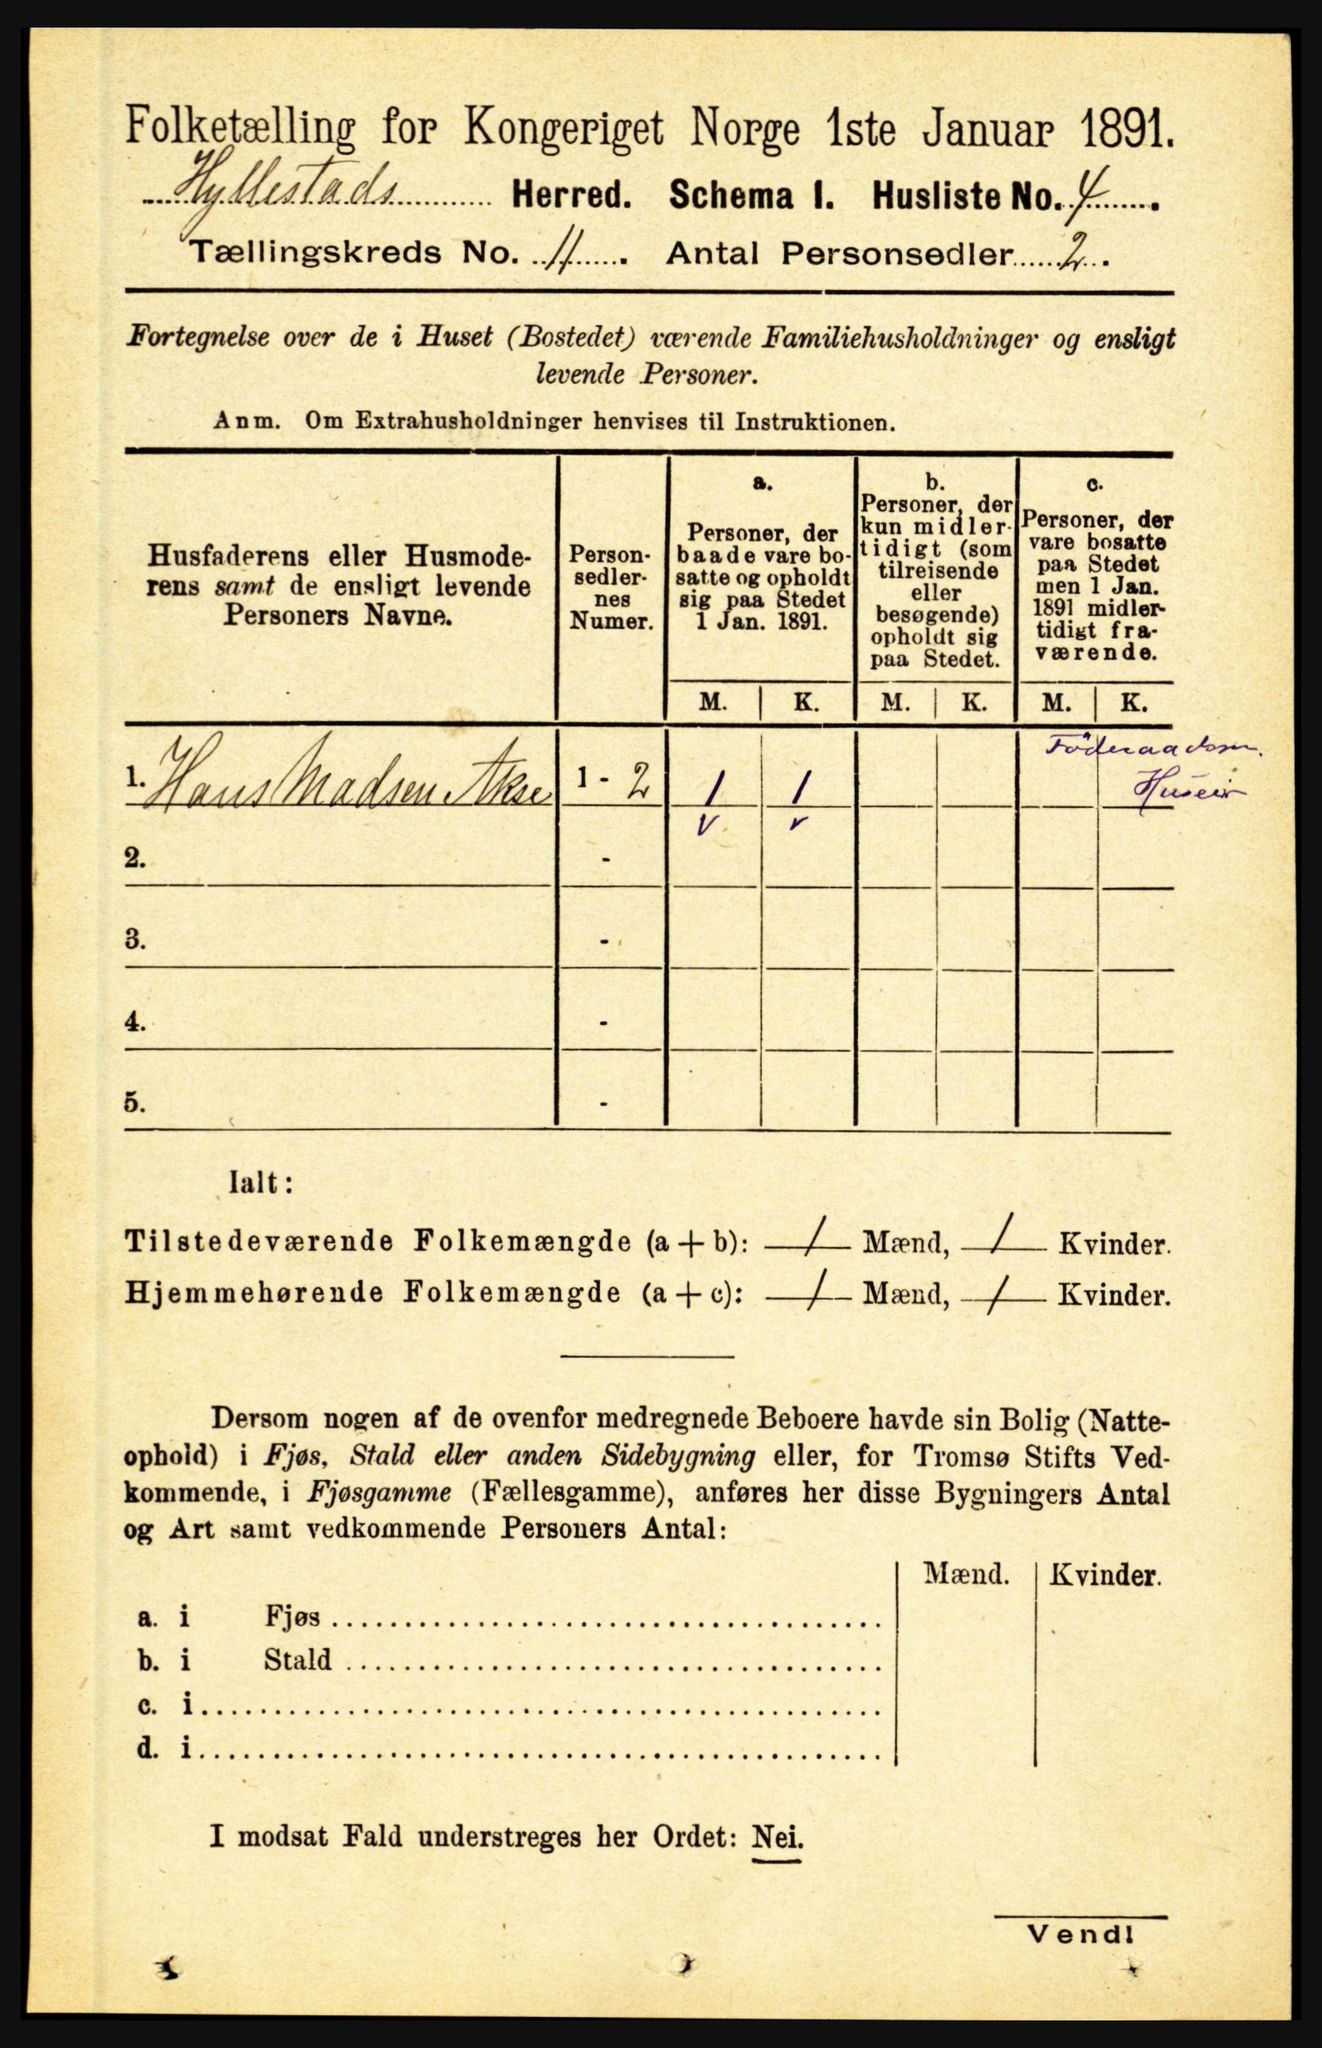 Folketælling for Kongeriget Norge 1ste Januar 1891.
Hyllestads Herred. Schema I. Husliste No. 4.
Tællingskreds No. 11. Antal Personsedler 2.
Fortegnelse over de i Huset (Bostedet) værende Familiehusholdninger og ensligt
levende Personer.
Anm. Om Extrahusholdninger henvises til Instruktionen.
Husfaderens eller Husmode-
rens samt de ensligt levende
Personers Navne.
Person-
sedler-
nes
Numer.
a.
Personer, der
baade vare bo-
satte og opholdt
sig paa Stedet
1 Jan. 1891.
b.
Personer, der
kun midler-
tidigt (som
tilreisende
eller
besøgende)
opholdt sig
paa Stedet.
c.
Personer, der
vare bosatte
paa Stedet
men 1 Jan.
1891 midler-
tidigt fra-
værende.
M. K. M. K. M. K.
Föderaadsm.
1. Hans Madsen Akse 1 - 2 1 1 Huseier
2. -
3. -
4. -
5. -
Ialt:
Tilstedeværende Folkemængde (a + b): 1 Mænd, 1 Kvinder.
Hjemmehørende Folkemængde (a + c): 1 Mænd, 1 Kvinder.
Dersom nogen af de ovenfor medregnede Beboere havde sin Bolig (Natte-
ophold) i Fjøs, Stald eller anden Sidebygning eller, for Tromsø Stifts Ved-
kommende, i Fjøsgamme (Fællesgamme), anføres her disse Bygningers Antal
og Art samt vedkommende Personers Antal:
Mænd. Kvinder.
a. i Fjøs
b. i Stald
c. i
d. i
I modsat Fald understreges her Ordet: Nei.
Vend!